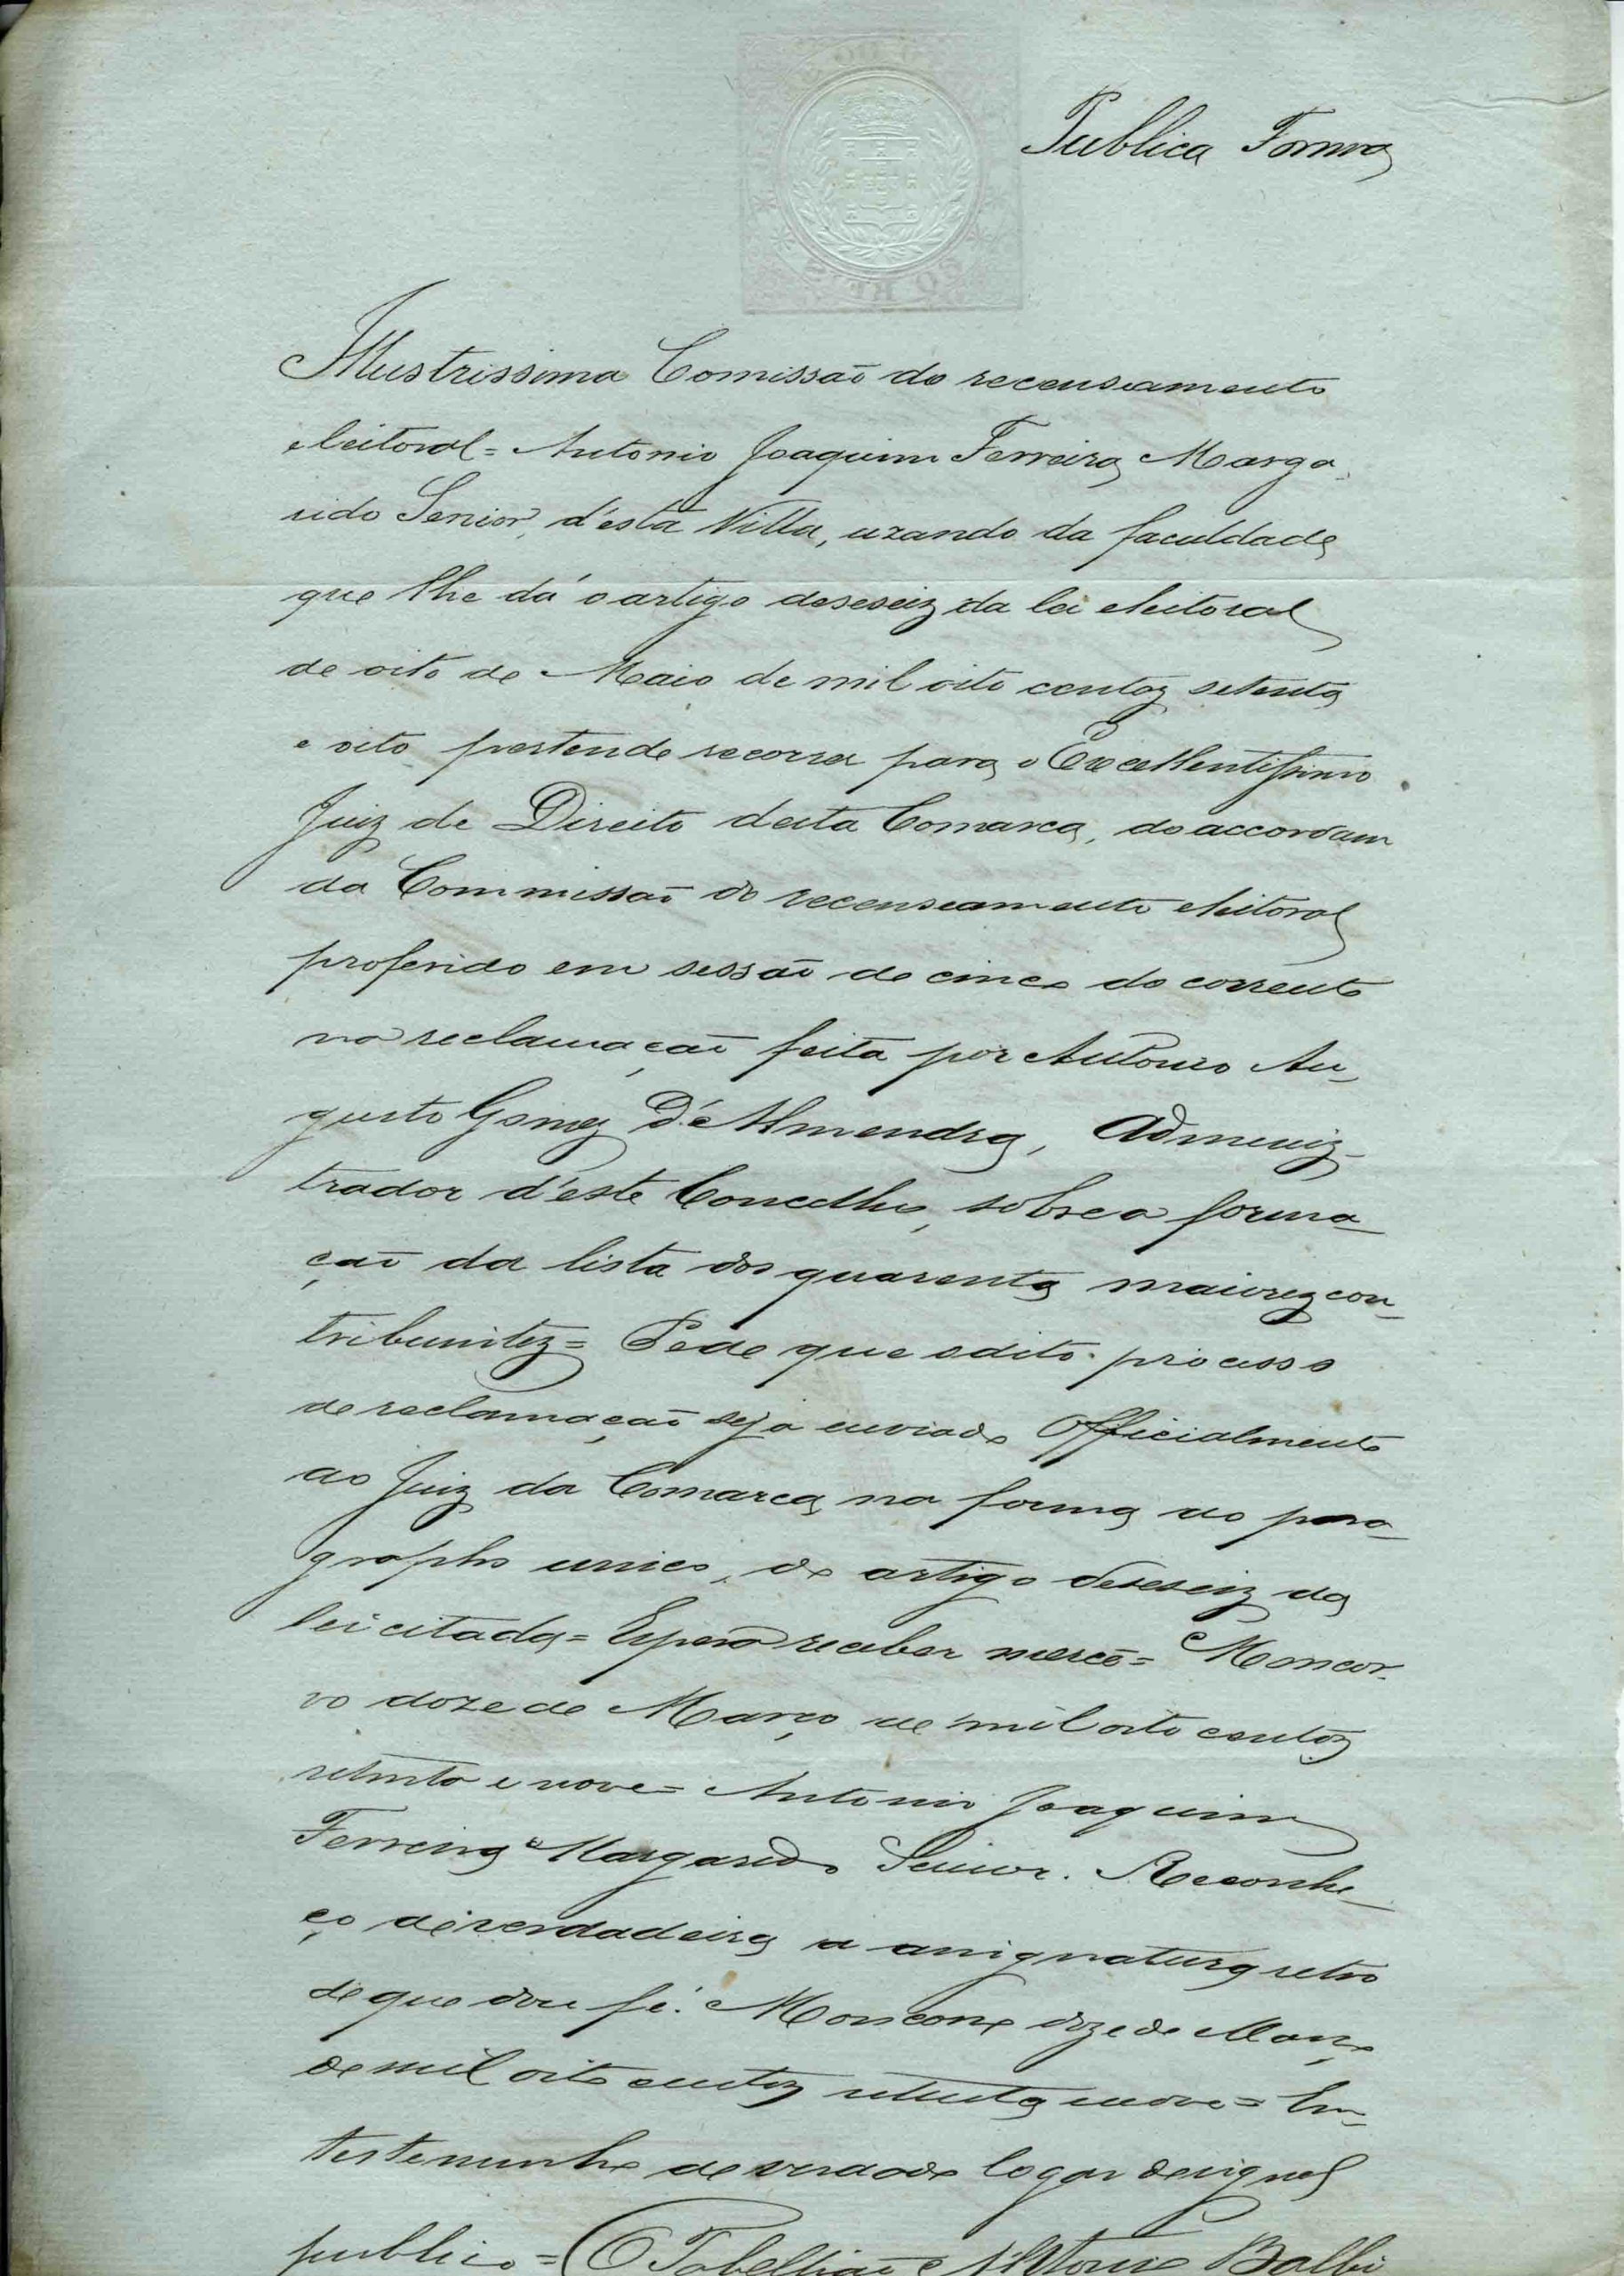 Publica Forma
Illustrissima Comissão do recenseamento
eleitoral = Antonio Joaquim Ferreira Marga-
rido Senior, d'esta Villa, uzando da faculdade
que lhe dá o artigo deseseiz da lei eleitoral
de oito de Maio de mil oito centoz setenta
e oito pertende recorrer para o Excellentissimo
Juiz de Direito desta Comarca, do accordam
da Commissão do recenseamento eleitoral
proferido em sessão de cinco do corrente
na reclamação feita por Antonio Au-
gusto Gomez D'Almendra, Adminiz-
trador d'este Concelho, sobre a forma-
ção da lista dos quarenta maiorez con-
tribuintez = Pede que o dito processo
de reclamação seja enviado Officialmente
ao Juiz da Comarca, na forma do para-
grapho unico, do artigo deseseiz da
lei citada = Espera receber mercê = Moncor-
vo doze de Março de mil oito centoz
setenta e nove = Antonio Joaquim
Ferreira Margarido Senior. Reconhe-
ço de verdadeira a assignatura retro
de que dou fé. Moncorvo doze de Março
de mil oito centoz setenta e nove = Em
testemunho de verdade logar do signal
publico = O Tabellião Antonio Balbi